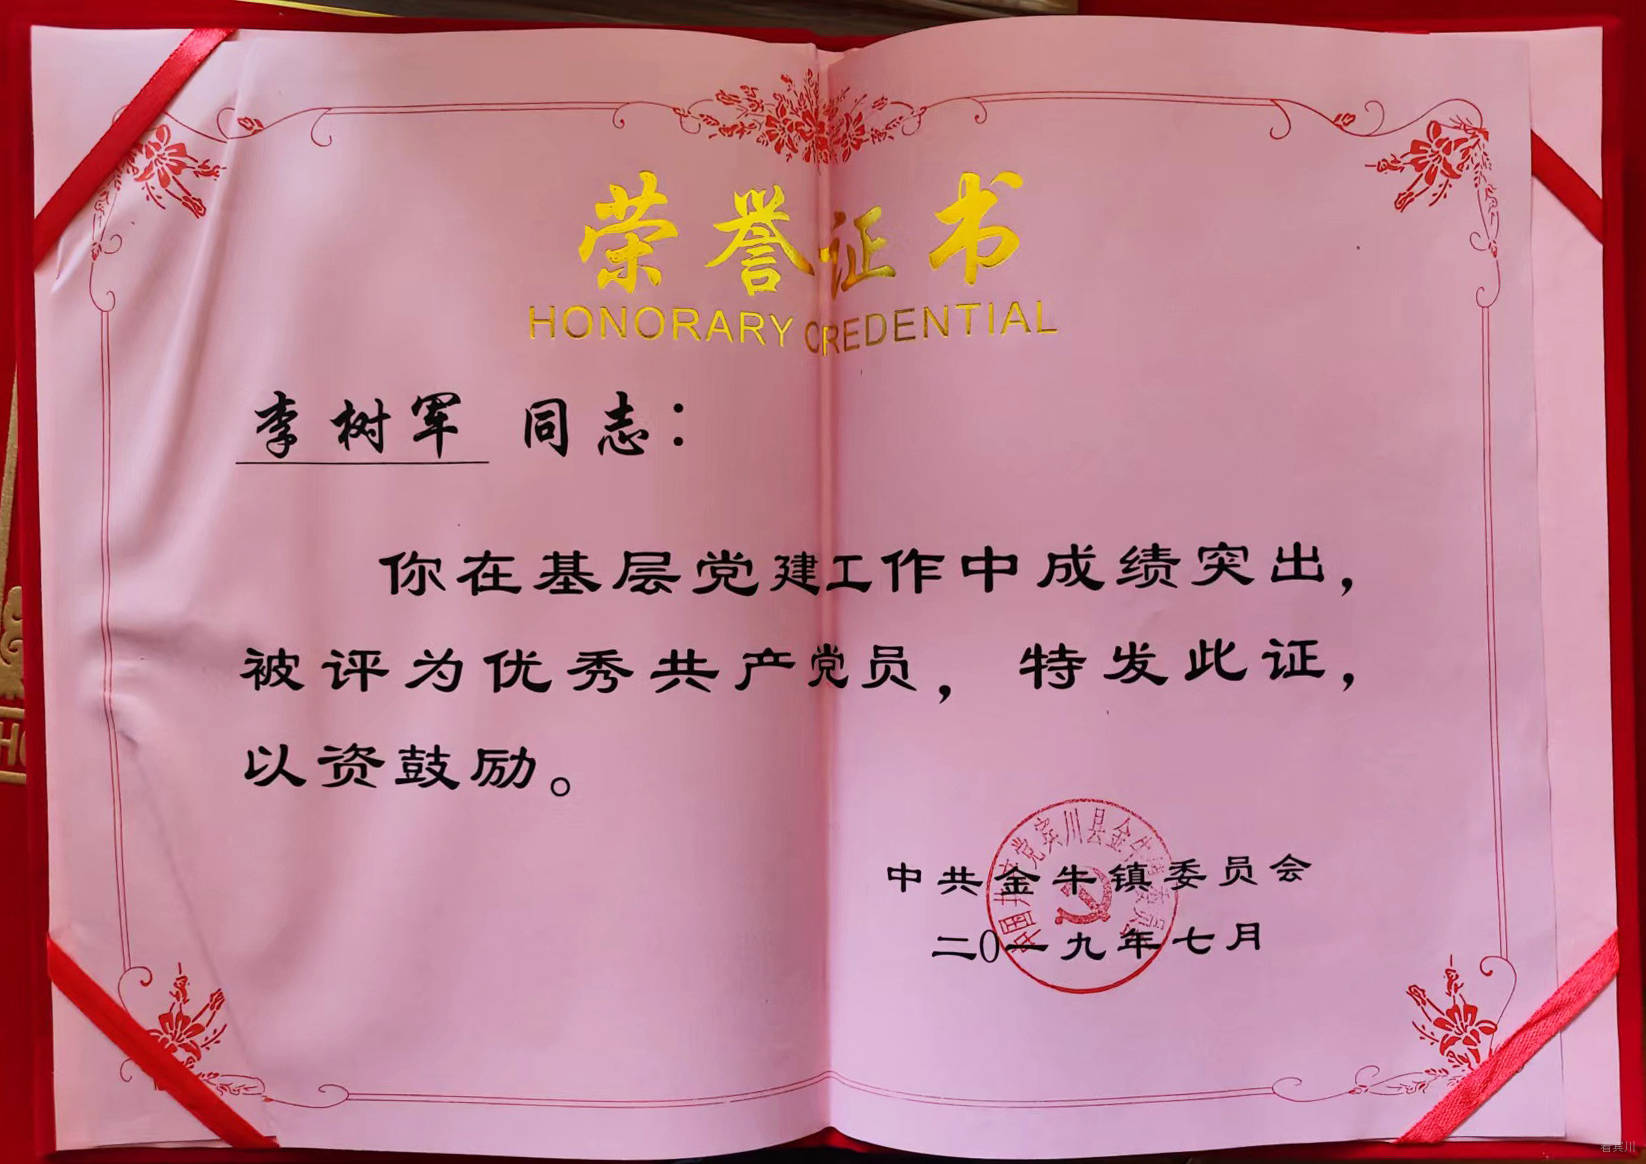 荣誉证书
HONORARY CREDENTIAL
李树军 同志：
你在基层党建工作中成绩突出，
被评为优秀共产党员，特发此证，
以资鼓励。
中国共产党宾川县金牛镇委员
中共金牛镇委员会
二0一九年七月
看宾川